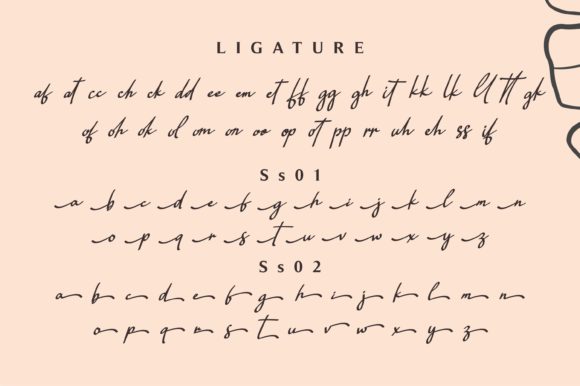 LIGATURE
af at cc ch ck dd ee em et ff gg gh it kk lk ll tt gk
of oh ok ol om on oo op ot pp rr uh eh ss if
Ss01
a b c d e f g h i j k l m n
o p q r s t u v w x y z
Ss02
a b c d e f g h i j k l m n
o p q r s t u v w x y z